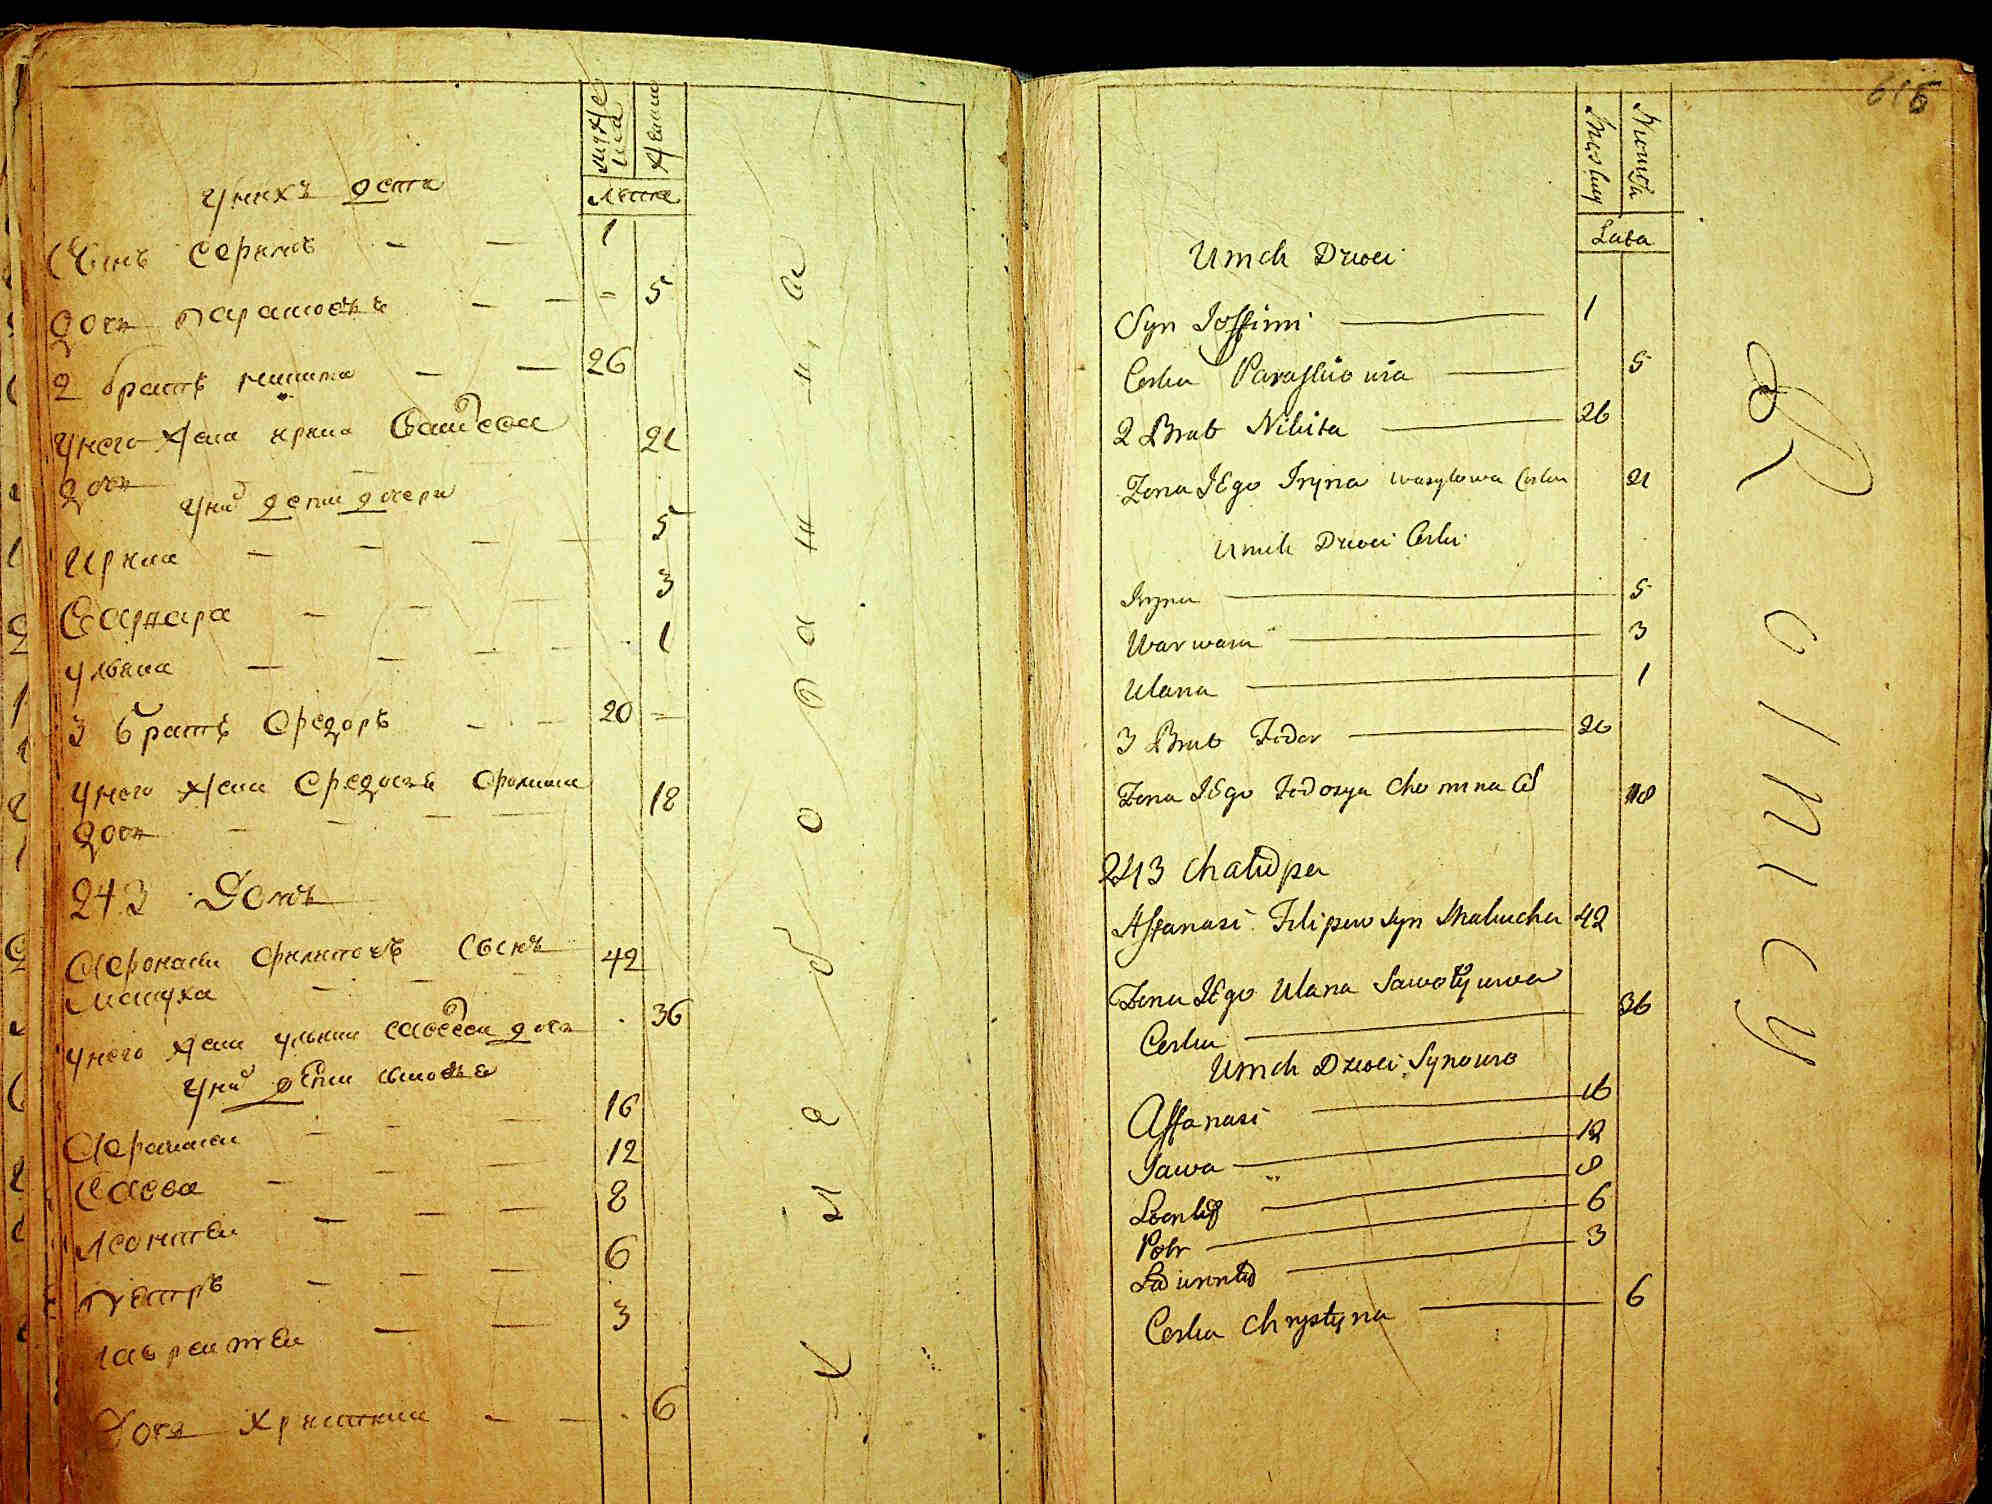 мужеска
женска
Лета
У них дети
Сынъ Сефимъ 1
Дочь Парасковея 5
2 братъ Никита 26
У него жена Ирина Васильева 21
дочь
У них дети дочери
Ирина 5
Варвара 3
Ульяна 1
3 братъ Федоръ 20
У него жена Федосия Фомина 18
дочь
243 Домъ
Афонасеи Филиповъ Сынъ 42
Малуха
У него жена Ульяна Савостьянова дочь 36
У них дети сыновья
Афанасеи 16
Савва 12
Леонтеи 8
Петръ 6
Лаврентеи 3
Дочь Христина 6
615
Męskiey
Kobieta
Lata
U nich Dzieci
Syn Joffimi 1
Corka Paraskiowia 5
2 Brat Nikita 26
Zona JEgo Iryna wasylowa Corka 21
U nich Dzieci Corki
Iryna 5
Warwara 3
Ulana 1
3 Brat Fedor 20
Zona JEgo Fedosya Chomina C 18
243 Chałupa
Affanasi Filipow Syn Malucha 42
Zona JEgo Ulana Sawostyanowa
Corka 36
U nich Dzieci Synowie
Affanasi 16
Sawa 12
Leontey 8
Potr 6
Ławrentey 3
Corka Chrystyna 6
R o l n i c y